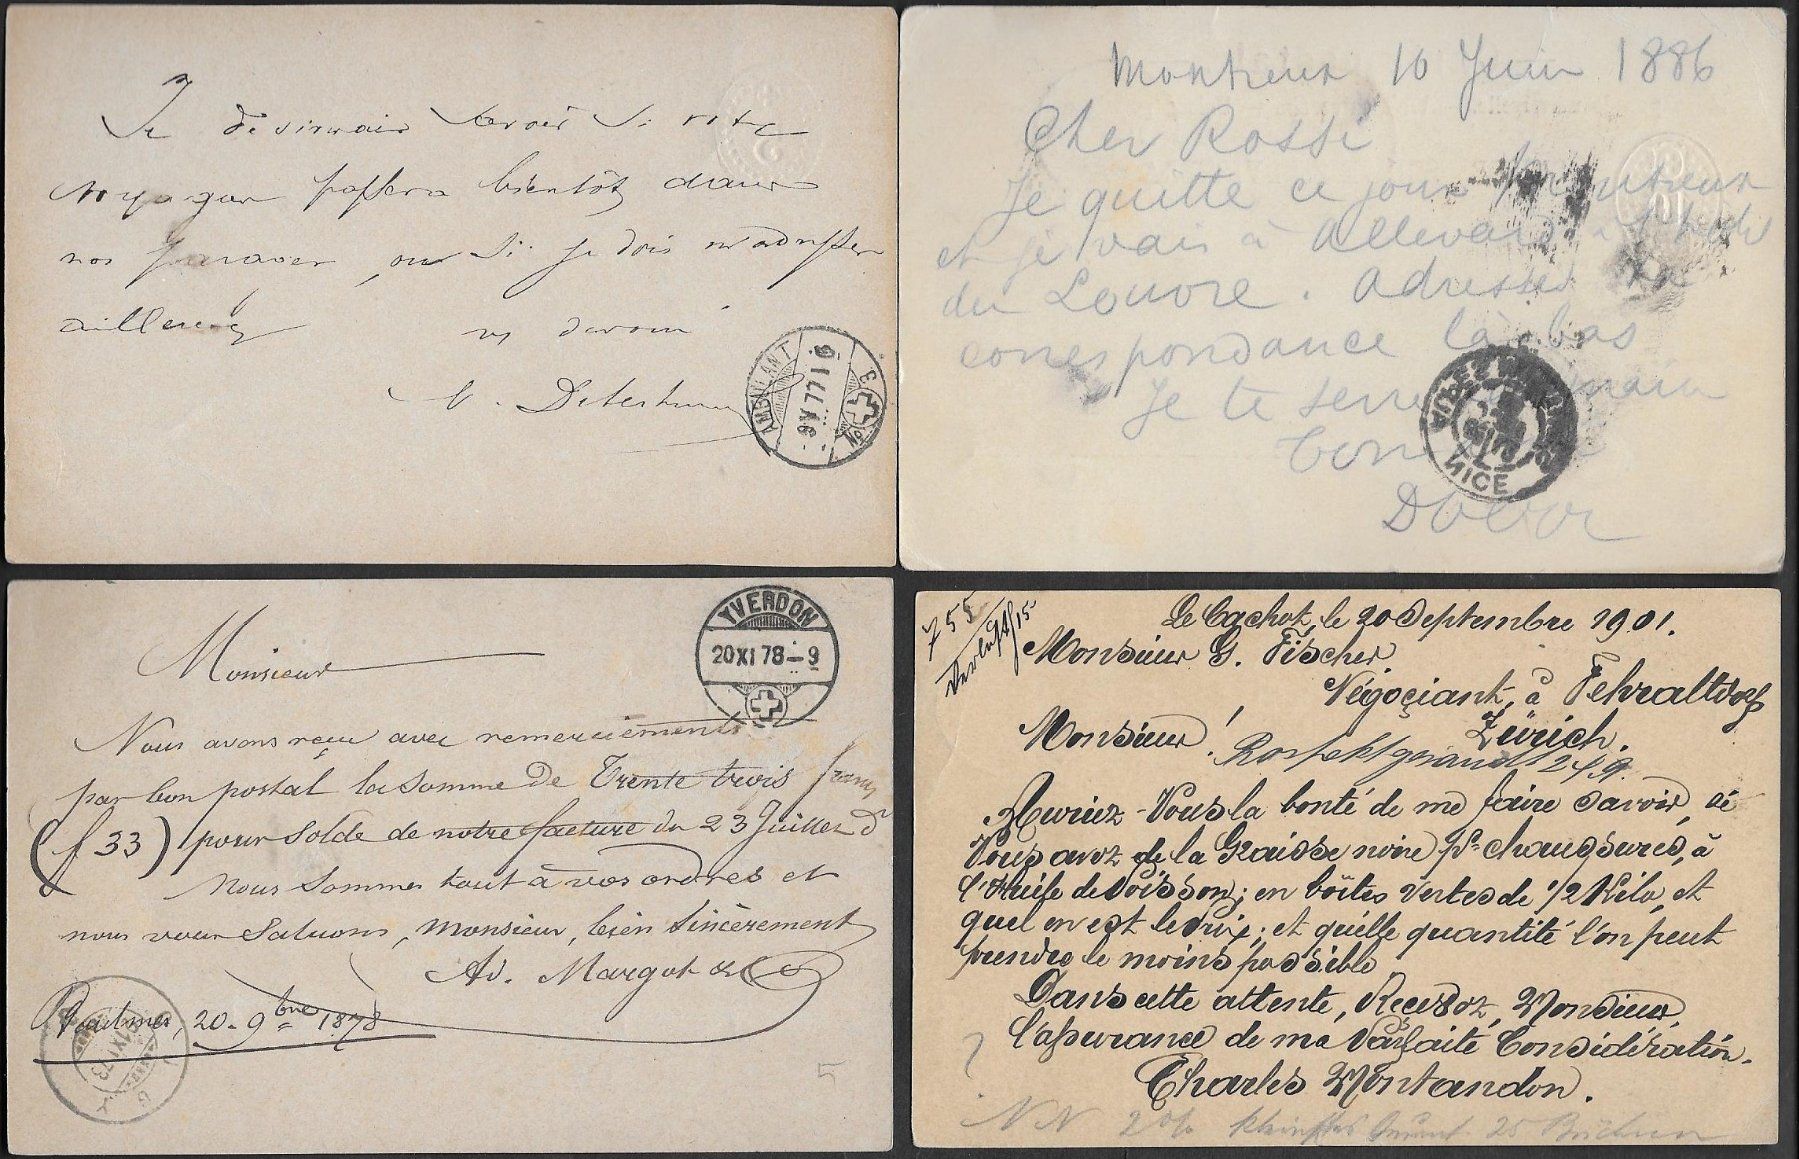 Je désirerais savoir si votre
voyageur passera bientôt dans
nos parages, ou si je dois m'adresser
ailleurs
AMBULANT
9 V 77 16
No 3
Montreux 10 Juin 1886
Cher Rossi
Je quitte ce jour Montreux
et je vais à Allevard à l'hôtel
du Louvre. Adresses ta
correspondance là bas
Je te serre main
NICE
Monsieur
YVERDON
20 XI 78 – 9
Nous avons reçu avec remerciements
par bon postal la somme de Trente trois francs
(f 33) pour solde de notre facture du 23 Juillet d
Nous sommes tout à vos ordres et
nous vous saluons, Monsieur, bien sincèrement
Ad. Margot & Co
20 – 9bre 1878
5
755
Le Cachot, le 20 Septembre 1901.
Monsieur G. Fischer
Négoçiant, à Fehraltdorf
Zürich.
Monsieur!
Auriez-Vous la bonté de me faire savoir, si
Vous avez de la Graisse noire pr chaussures, à
l'Huile de Poisson; en boîtes vertes de 1/2 Kilo, et
quel en est le prix; et quelle quantité l'on peut
prendre le moins possible
Dans cette attente, Recevez, Monsieur,
l'assurance de ma Parfaite Considération.
Charles Montandon.
NN 2% 25 Büchsen